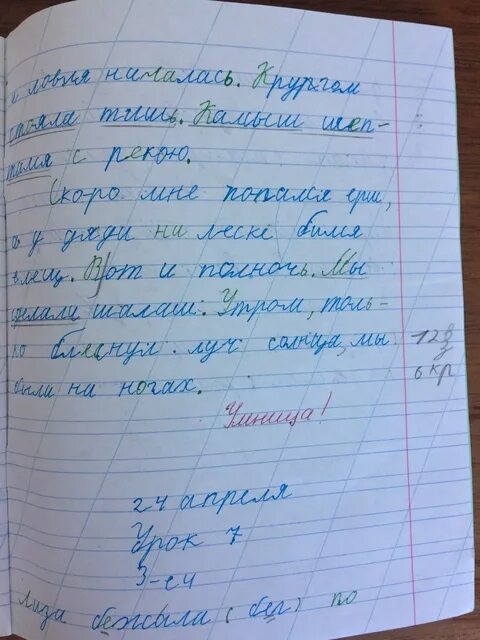 и ловля началась. Кругом
стояла тишь. Камыш шеп-
тался с рекою.
Скоро мне попался ёрш,
а у дяди на леске бился
лещ. Вот и полночь. Мы
сделали шалаш. Утром, толь-
ко блеснул луч солнца, мы
были на ногах.
12
6 кр
Умница!
24 апреля
Урок 7
3-ей
Лиза бежала (бег) по